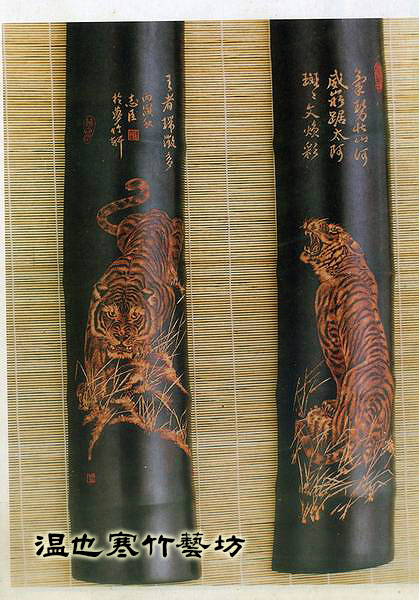 氣勢壯山河
威嚴踞太阿
斑々文煥彩
王者瑞徵多
丙寅秋
志
於夢竹軒
温也寒竹藝坊